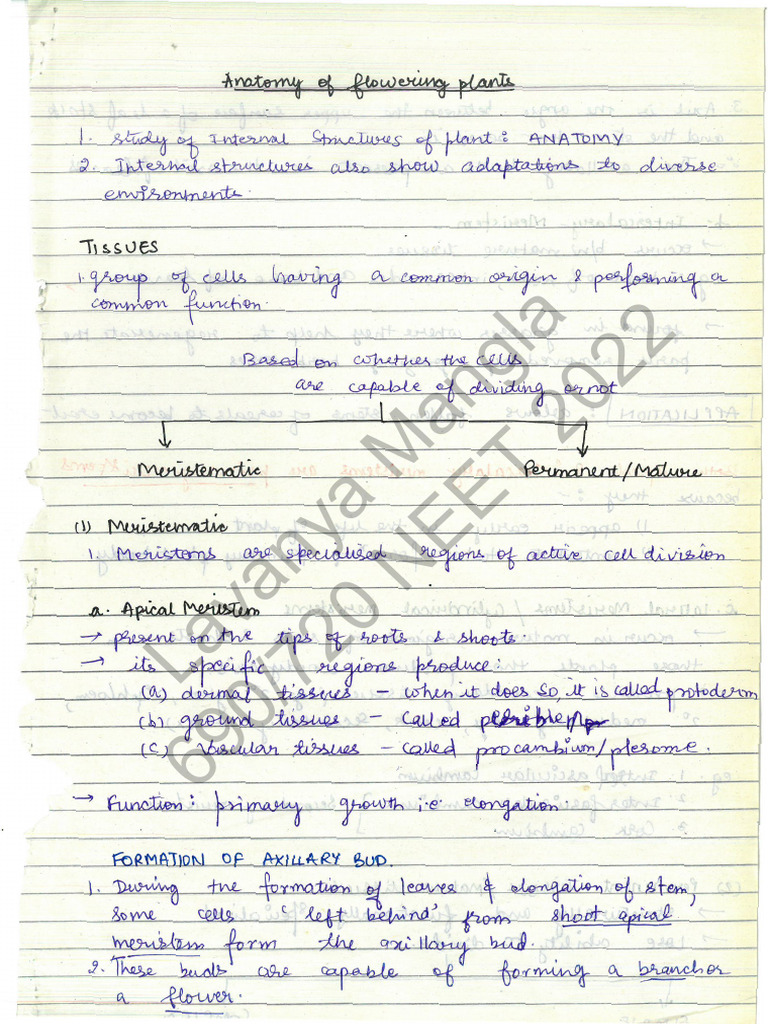 Anatomy of flowering plants
1. Study of Internal Structures of plant : ANATOMY
2. Internal structures also show adaptations to diverse
environments.
TISSUES
1. group of cells having a common origin & performing a
common function.
Based on whether the cells
are capable of dividing or not
Meristematic Permanent/Mature
(1) Meristematic
1. Meristems are specialised regions of active cell division
a. Apical Meristem
→ present on the tips of roots & shoots.
→ its specific regions produce:
(a) dermal tissues – when it does so, it is called protoderm
(b) ground tissues – called
(c) Vascular tissues – called procambium/plerome.
→ Function : primary growth i.e. elongation.
FORMATION OF AXILLARY BUD.
1. During the formation of leaves & elongation of stem,
some cells 'left behind' from shoot apical
meristem form the axillary bud.
2. These buds are capable of forming a branch or
a flower.
Lavanya Mangla
690/720 NEET 2022